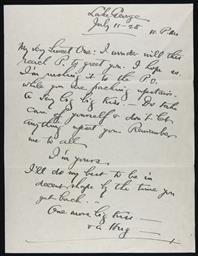 Lake George
July 11-28 10 P.M.
My very Sweet One: I wonder will this
reach P. to greet you. I hope so.
I'm rushing it to the P.O.
while you are packing upstairs.
A very big kiss — Do take
care of yourself & don't let
anything upset you. Remember
me to all
I'm yours
I'll do my best to be in
decent shape by the time you
get back. —
One more big kiss —
& a Hug —